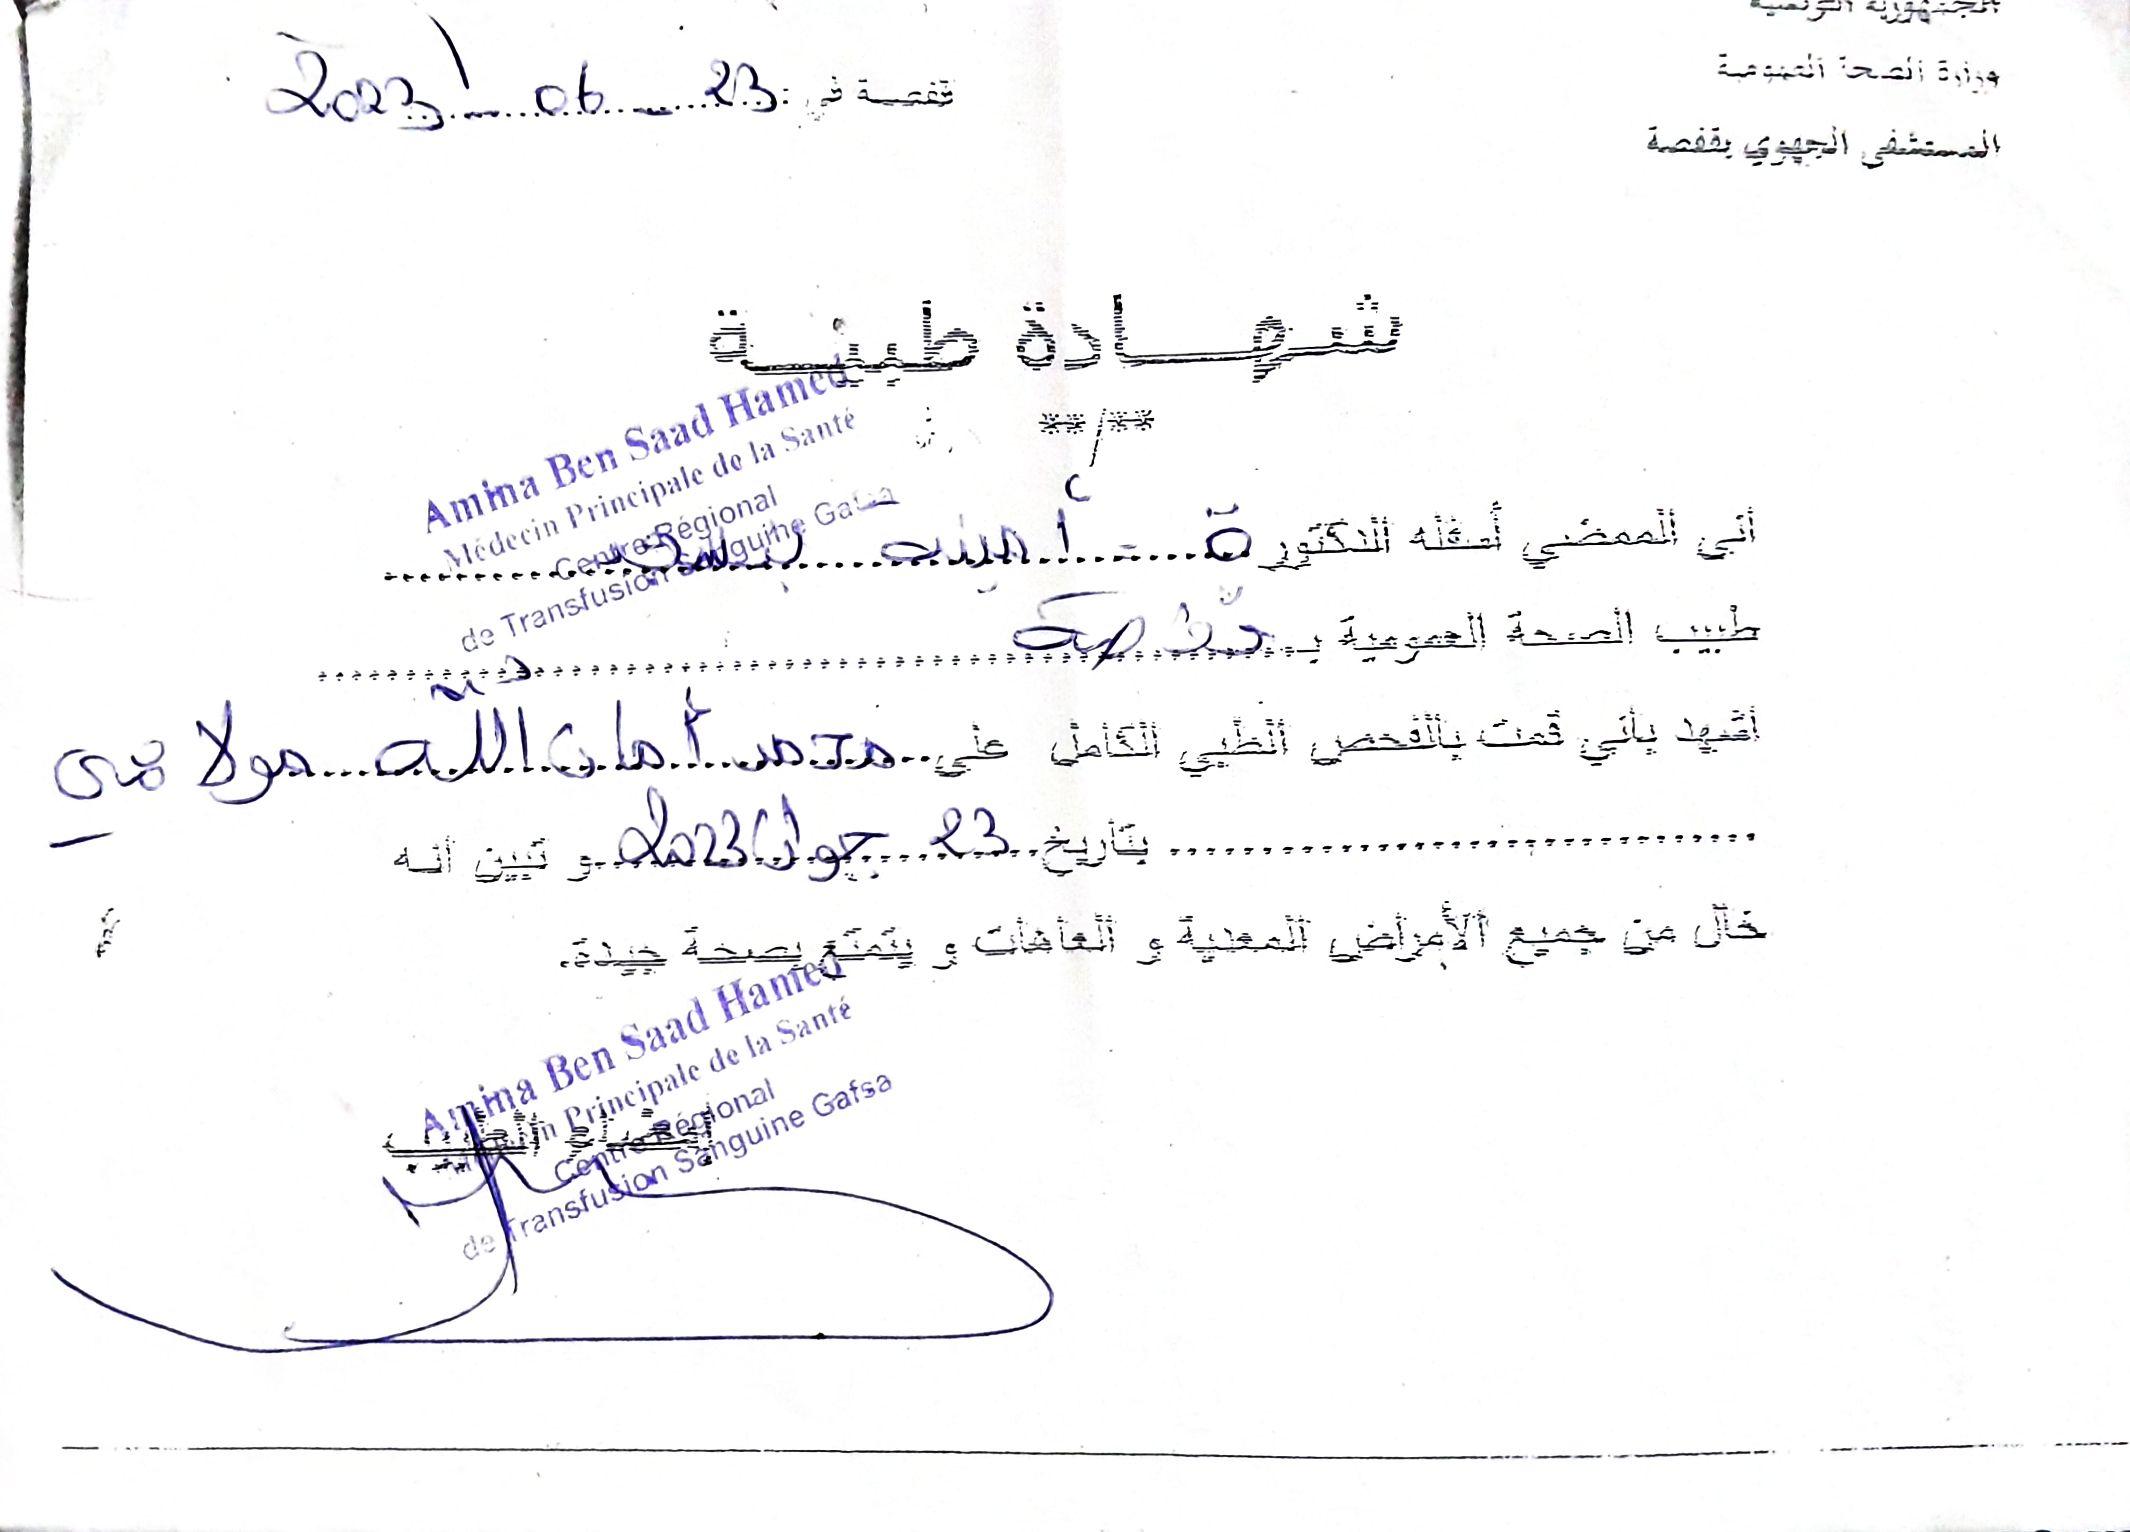 الجمهورية التونسية
وزارة الصحة العمومية
المستشفى الجهوي بقفصة
قفصة في : 23 06 2023
شهادة طبية
**/**
Amina Ben Saad Hamed
Médecin Principale de la Santé
Centre Régional
de Transfusion Sanguine Gafsa
أني الممضي أسفله الدكتورة أمينة بن سعد
طبيب الصحة العمومية بـ قفصة
أشهد بأني قمت بالفحص الطبي الكامل على محمد أمان الله مولاهي
بتاريخ 23 جوان 2023 و تبين أنه
خال من جميع الأمراض المعدية و العاهات و يتمتع بصحة جيدة.
Amina Ben Saad Hamed
Médecin Principale de la Santé
Centre Régional
de Transfusion Sanguine Gafsa
إمضاء الطبيب